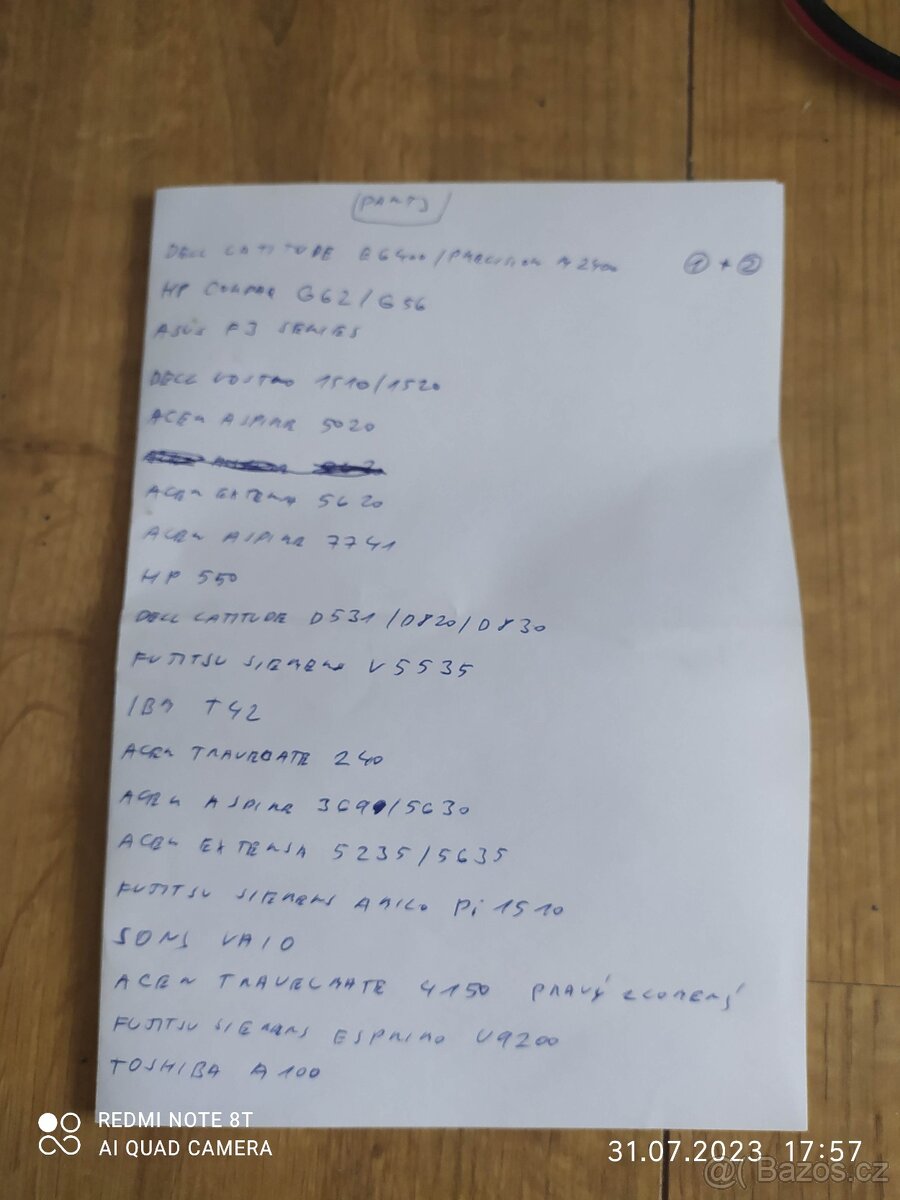 PANTY
DELL LATITUDE E6400/PRECISION M2400 1 + 2
HP COMPAQ G62/G56
ASUS F3 SERIES
DELL VOSTRO 1510/1520
ACER ASPIRE 5020
ACER EXTENSA 5620
ACER ASPIRE 7741
HP 550
DELL LATITUDE D531/D820/D830
FUJITSU SIEMENS V5535
IBM T42
ACER TRAVELMATE 240
ACER ASPIRE 3690/5630
ACER EXTENSA 5235/5635
FUJITSU SIEMENS AMILO Pi 1510
SONY VAIO
ACER TRAVELMATE 4150 PRAVÝ ZLOMENÝ
FUJITSU SIEMENS ESPRIMO V9200
TOSHIBA A100
REDMI NOTE 8T
AI QUAD CAMERA
31.07.2023 17:57
@ Bazos.cz